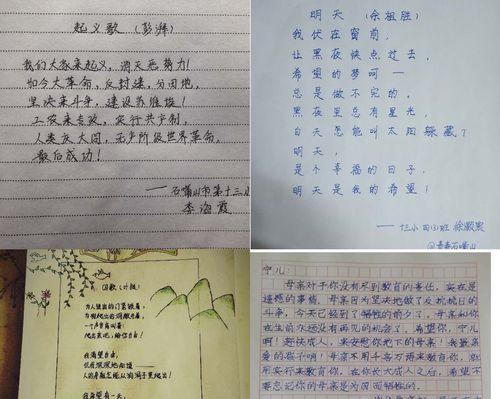 起义歌(彭湃)
我们大家来起义,消灭恶势力!
如今大革命,反封建,分田地,
坚决来斗争,建设苏维埃!
工农来专政,实行共产制,
人类庆大同,无产阶级世界革命,
最后成功!
——石嘴山市第十三小
李海霞
明天 (余祖胜)
我伏在窗前,
让黑夜快点过去,
希望的梦呵一
总是做不完的,
黑夜里总有星光,
白天怎能叫太阳躲藏?
明天,
是个幸福的日子,
明天是我的希望!
——十三小四(3)班
囚歌(叶挺)
为人进出的门紧锁着,
为狗爬出的洞敞开着,
一个声音高叫着:
爬出来吧,给你自由!
我渴望自由,
但我深深地知道——
人的身躯怎能从狗洞子里爬出!
我希望有一天,
宁儿:
母亲对于你没有尽到教育的责任,实在是
遗憾的事情。母亲因为坚决地做了反抗日的
斗争,今天已经到了牺牲的前夕了。母亲和你
在生前永远没有再见的机会了。希望你,宁儿
啊!赶快成人,来安慰你地下的母亲!我最亲
爱的孩子啊!母亲不用千言万语来教育你,就
用实行来教育你。在你长大成人之后,希望不
要忘记你的母亲是为国而牺牲的。